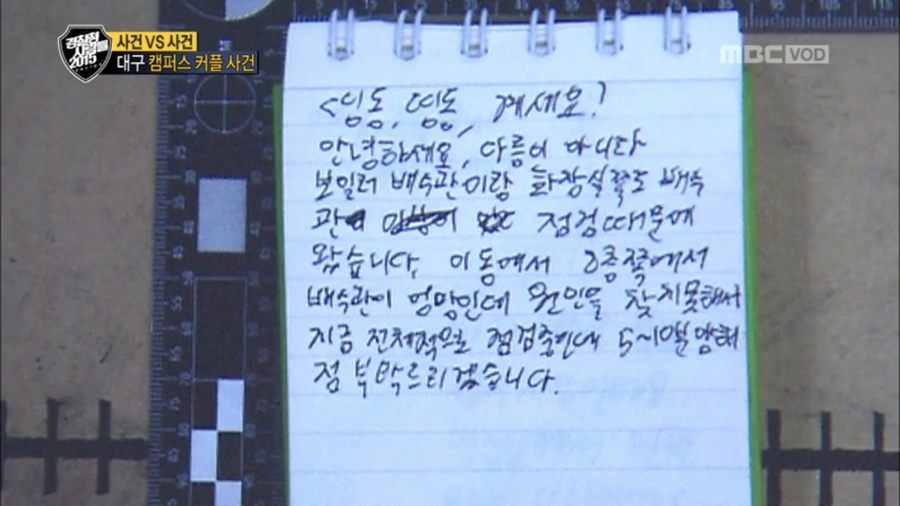 경찰청
사람들
2015
사건 VS 사건
대구 캠퍼스 커플 사건
MBC VOD
<띵동, 띵동, 계세요?
안녕하세요, 다름이 아니다
보일러 배수관이랑 화장실쪽도 배수
관 점검때문에
왔습니다. 이동에서 2층쪽에서
배수관이 엉망인데 원인을 찾지못해서
지금 전체적으로 점검중인데 5~10분 양해
점 부탁드리겠습니다.